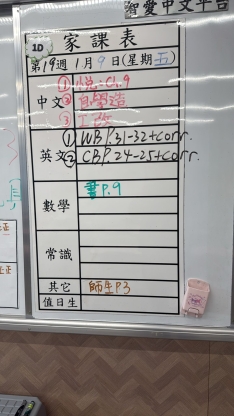 智愛中文平台
1D
家課表
第19週 1月9日(星期五)
中文 ① 悅:Ch.9
② 自學造
③ 工改
英文 ① WB P.31-32+corr.
② CB P.24-25+corr.
數學 書P.9
常識
其它 師生P.3
值日生